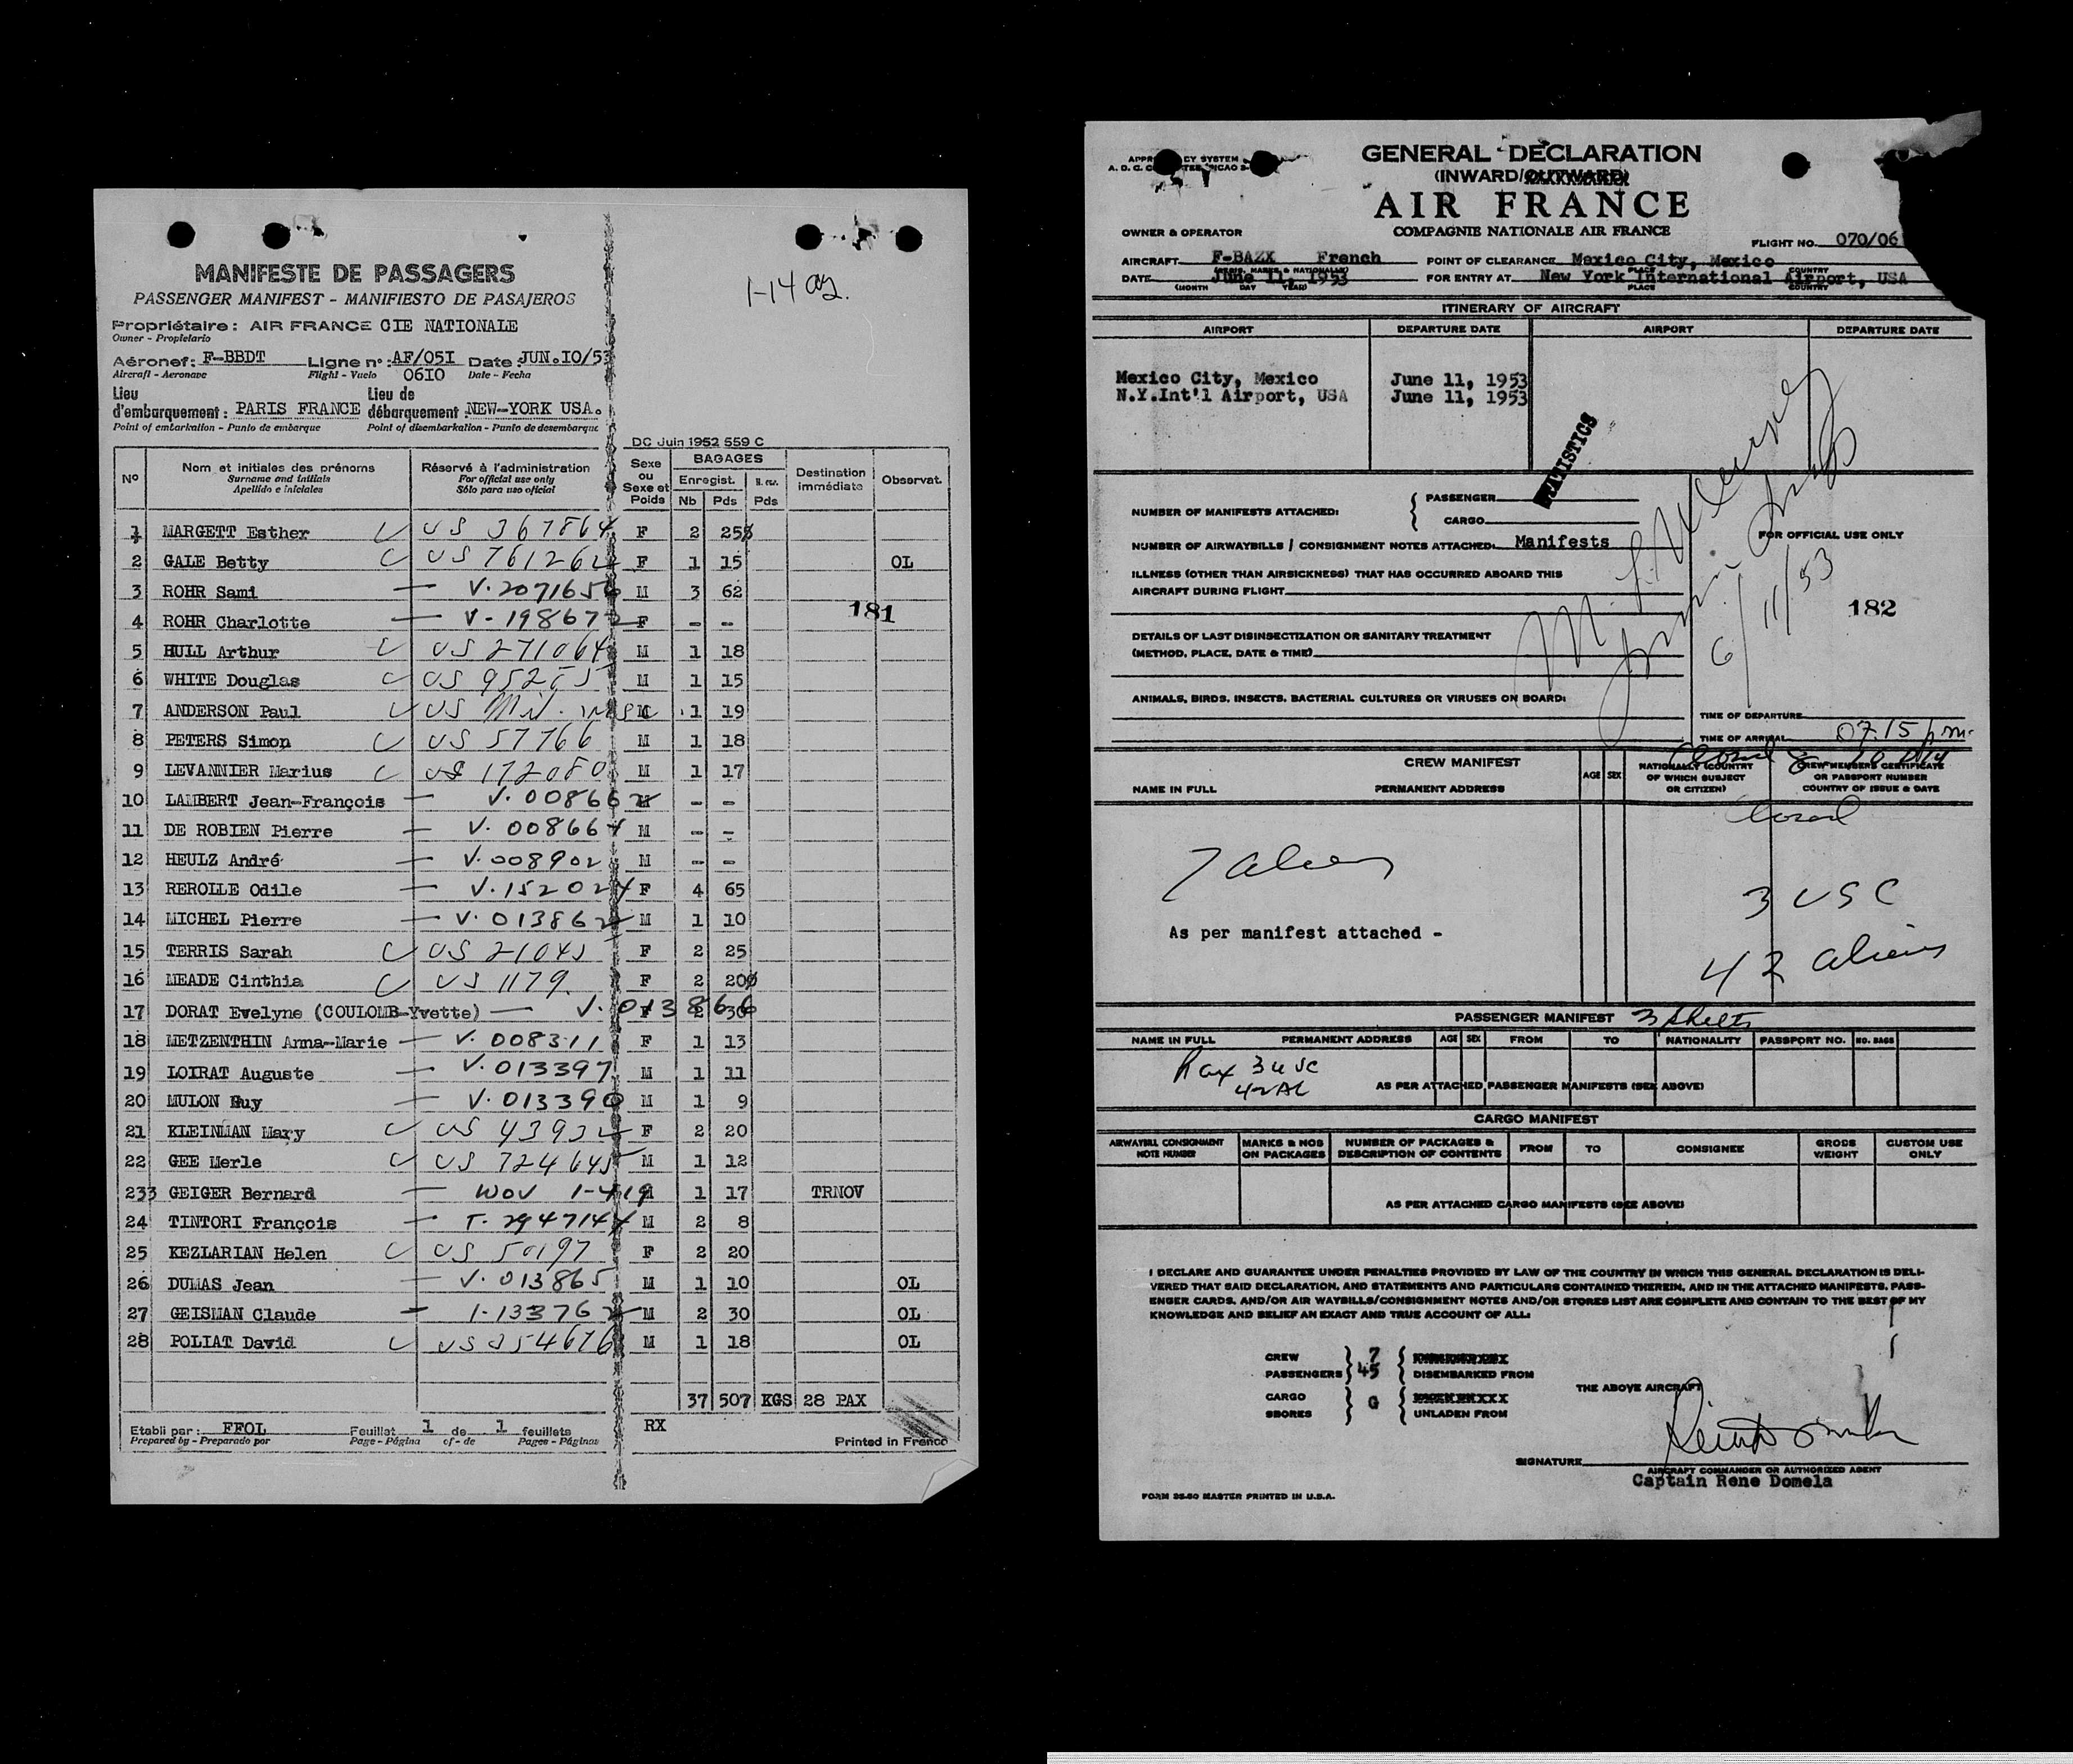 MANIFESTE DE PASSAGERS
PASSENGER MANIFEST - MANIFIESTO DE PASAJEROS
1-14
Propriétaire : AIR FRANCE CIE NATIONALE
Owner - Propietario
Aéronef : F-BBDT Ligne n° : AF/05I Date : JUN.IO/53
Aircraft - Aeronave Flight - Vuelo 06I0 Date - Fecha
Lieu d'embarquement : PARIS FRANCE Lieu de débarquement : NEW-YORK USA.
Point of embarkation - Punto de embarque Point of disembarkation - Punto de desembarque
DC Juin 1952 559 C
N° Nom et initiales des prénoms Réservé à l'administration Sexe ou Sexe et Poids BAGAGES Destination immédiate Observat.
Surname and initials For official use only Enregist. N. en.
Apellido e iniciales Sólo para uso oficial Nb Pds Pds
1 MARGETT Esther US 367864 F 2 25
2 GALE Betty US 761262 F 1 15 OL
3 ROHR Sami V. 2071656 M 3 62
181
4 ROHR Charlotte V - 198672 F - -
5 HULL Arthur US 271064 M 1 18
6 WHITE Douglas US M 1 15
7 ANDERSON Paul US M 1 19
8 PETERS Simon US 57766 M 1 18
9 LEVANNIER Marius US 172080 M 1 17
10 LAMBERT Jean-François V. 00866 M - -
11 DE ROBIEN Pierre V. 008664 M - -
12 HEULZ André V. 008902 M - -
13 REROLLE Odile V. 152024 F 4 65
14 MICHEL Pierre V. 013862 M 1 10
15 TERRIS Sarah US 21045 F 2 25
16 MEADE Cinthia US 1179 F 2 20
17 DORAT Evelyne (COULOMB-Yvette) V. 013866 F 2 30
18 METZENTHIN Anna-Marie V. 008311 F 1 13
19 LOIRAT Auguste V. 013397 M 1 11
20 MULON Guy V. 013390 M 1 9
21 KLEINMAN Mary US 43932 F 2 20
22 GEE Merle US 724645 M 1 12
233 GEIGER Bernard WOV 1-419 M 1 17 TRNOV
24 TINTORI François T. 2947144 M 2 8
25 KEZLARIAN Helen US 50197 F 2 20
26 DUMAS Jean V. 013865 M 1 10 OL
27 GEISMAN Claude 1-133762 M 2 30 OL
28 POLIAT David US 354676 M 1 18 OL
37 507 KGS 28 PAX
Etabli par : FFOL Feuillet 1 de 1 feuillets RX
Prepared by - Preparado por Page - Página of - de Pages - Páginas Printed in France
GENERAL DECLARATION
(INWARD/OUTWARD)
AIR FRANCE
OWNER & OPERATOR COMPAGNIE NATIONALE AIR FRANCE
FLIGHT NO. 070/06
AIRCRAFT F-BAZX French POINT OF CLEARANCE Mexico City, Mexico
(REGIS. MARKS & NATIONALITY) PLACE COUNTRY
DATE June 11, 1953 FOR ENTRY AT New York International Airport, USA
(MONTH DAY YEAR) PLACE COUNTRY
ITINERARY OF AIRCRAFT
AIRPORT DEPARTURE DATE AIRPORT DEPARTURE DATE
Mexico City, Mexico June 11, 1953
N.Y.Int'l Airport, USA June 11, 1953
STATISTICS
NUMBER OF MANIFESTS ATTACHED: PASSENGER
CARGO
NUMBER OF AIRWAYBILLS / CONSIGNMENT NOTES ATTACHED: Manifests
FOR OFFICIAL USE ONLY
ILLNESS (OTHER THAN AIRSICKNESS) THAT HAS OCCURRED ABOARD THIS
AIRCRAFT DURING FLIGHT
6/11/53
182
DETAILS OF LAST DISINSECTIZATION OR SANITARY TREATMENT
(METHOD, PLACE, DATE & TIME)
ANIMALS, BIRDS, INSECTS, BACTERIAL CULTURES OR VIRUSES ON BOARD:
TIME OF DEPARTURE
TIME OF ARRIVAL 07.15 p.m.
CREW MANIFEST
NAME IN FULL PERMANENT ADDRESS AGE SEX NATIONALITY (COUNTRY OF WHICH SUBJECT OR CITIZEN) CREW MEMBERS CERTIFICATE OR PASSPORT NUMBER COUNTRY OF ISSUE & DATE
7 alien
3 USC
As per manifest attached -
42 aliens
PASSENGER MANIFEST 3 sheets
NAME IN FULL PERMANENT ADDRESS AGE SEX FROM TO NATIONALITY PASSPORT NO. NO. BAGS
Pax 3 USC
42 AL
AS PER ATTACHED PASSENGER MANIFESTS (SEE ABOVE)
CARGO MANIFEST
AIRWAYBILL CONSIGNMENT NOTE NUMBER MARKS & NOS ON PACKAGES NUMBER OF PACKAGES & DESCRIPTION OF CONTENTS FROM TO CONSIGNEE GROSS WEIGHT CUSTOM USE ONLY
AS PER ATTACHED CARGO MANIFESTS (SEE ABOVE)
I DECLARE AND GUARANTEE UNDER PENALTIES PROVIDED BY LAW OF THE COUNTRY IN WHICH THIS GENERAL DECLARATION IS DELI-
VERED THAT SAID DECLARATION, AND STATEMENTS AND PARTICULARS CONTAINED THEREIN, AND IN THE ATTACHED MANIFESTS, PASS-
ENGER CARDS, AND/OR AIR WAYBILLS/CONSIGNMENT NOTES AND/OR STORES LIST ARE COMPLETE AND CONTAIN TO THE BEST OF MY
KNOWLEDGE AND BELIEF AN EXACT AND TRUE ACCOUNT OF ALL:
CREW 7
PASSENGERS 45 DISEMBARKED FROM
THE ABOVE AIRCRAFT
CARGO
STORES 0 UNLADEN FROM
SIGNATURE
AIRCRAFT COMMANDER OR AUTHORIZED AGENT
Captain Rene Domela
FORM 35-50 MASTER PRINTED IN U.S.A.